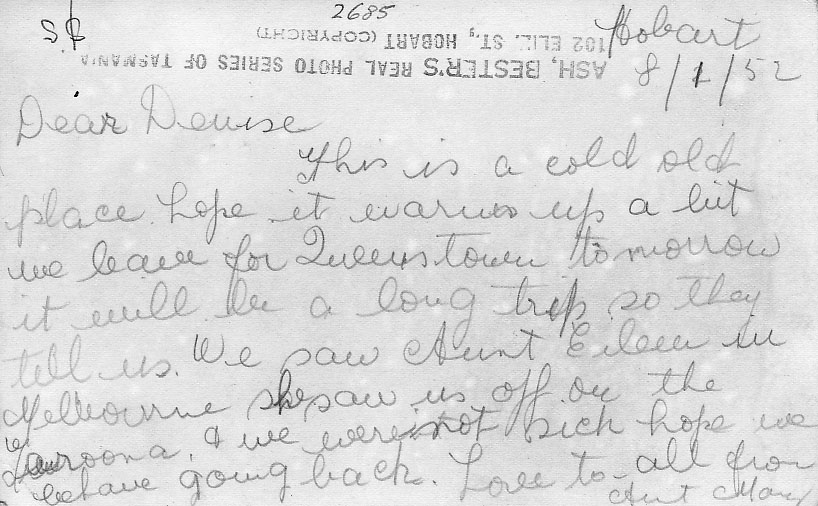 2685
S
ASH, BESTER'S REAL PHOTO SERIES OF TASMANIA
102 ELIZ. ST., HOBART (COPYRIGHT)
Hobart
8/1/52
Dear Denise
This is a cold old
place. hope it warms up a bit
we leave for Queenstown tomorrow
it will be a long trip so they
tell us. We saw Aunt Eileen in
Melbourne she saw us off on the
Taroona, & we were not sick hope we
behave going back. Love to all from
Aunt Mary